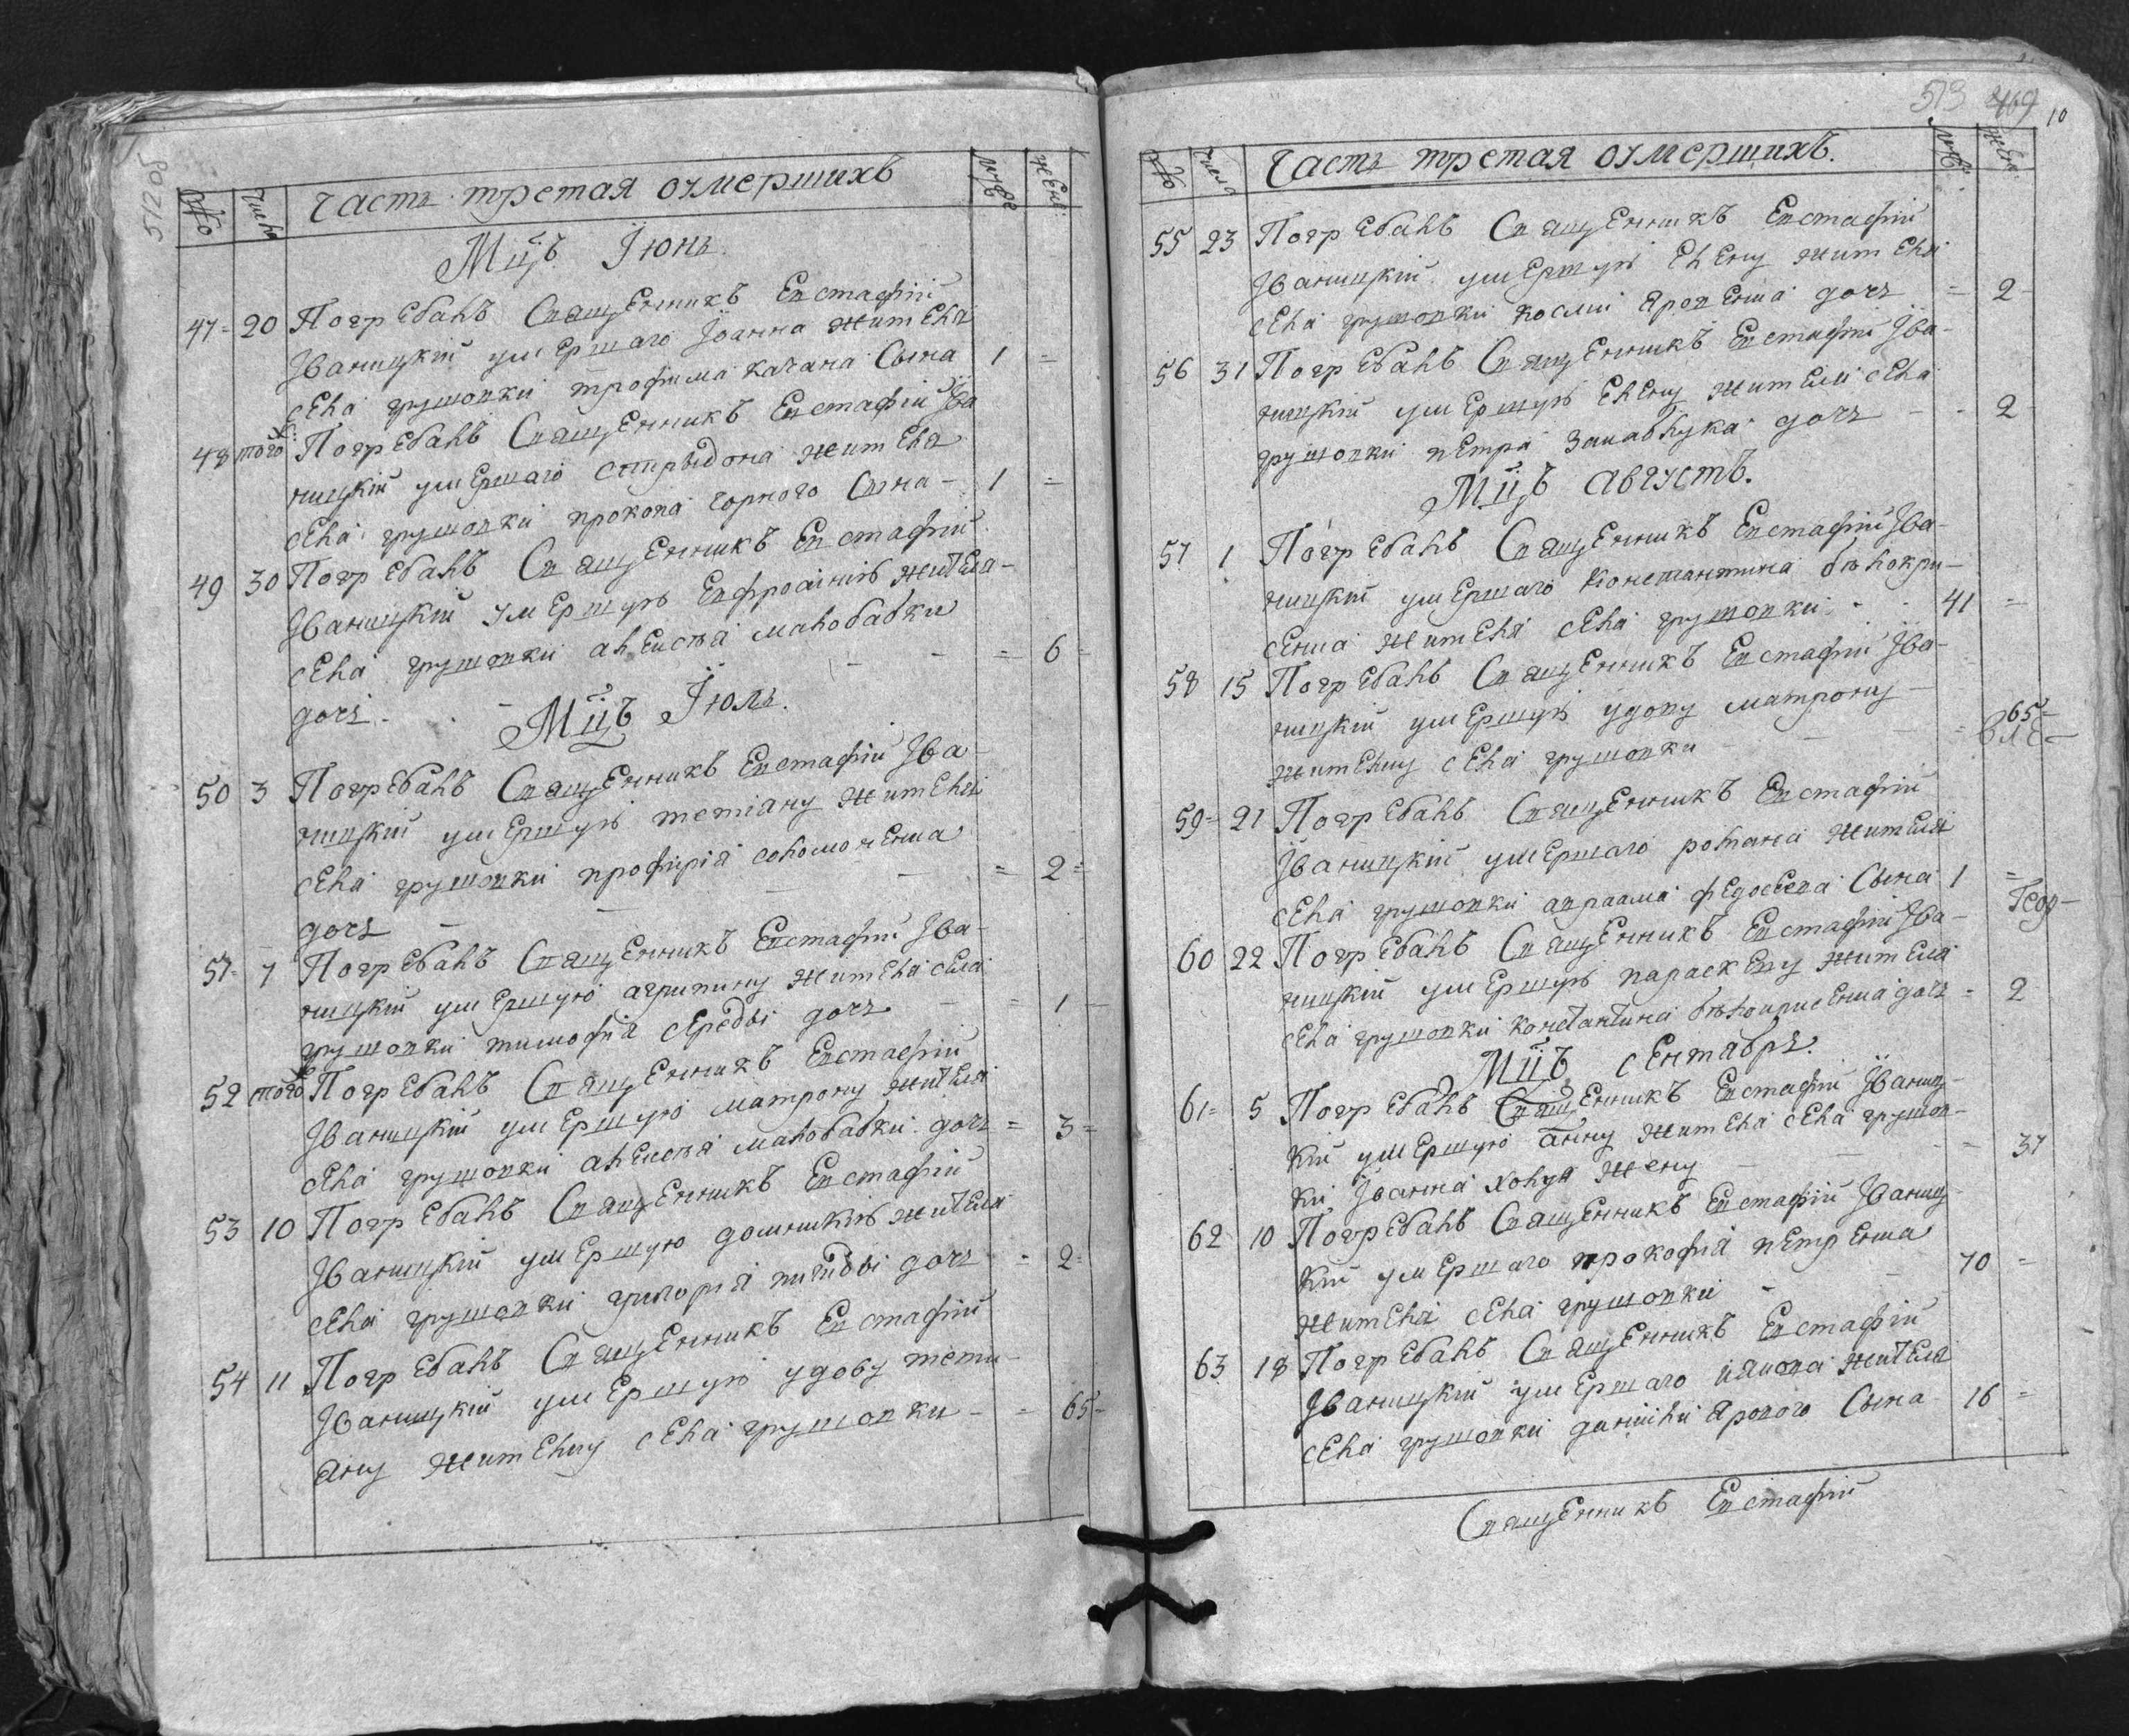 512 об
№ Числа Часть третая оумершихъ мужс женс
Мцъ Їюнь
47 = 20 Погребалъ Священникъ Евстафїй
Їваницкїй умершаго Їоанна жителя
села грушовки трофима качана Сына 1 =
48 того Погребалъ Священникъ Евстафїй Їва
ницкїй умершаго спиридона жителя
села грушовки прокопа чорного Сына - 1 =
49 30 Погребалъ Священникъ Евстафїй
Їваницкїй умершую Евфросінїю жителя -
села грушовки алексѣя малобабки
дочь - - - = 6 =
Мцъ Їюль.
50 3 Погребалъ Священникъ Евстафїй Їва -
ницкїй умершую тетіану жителя
села грушовки профирїя соломченка
дочь - - - = 2 =
51 = 7 Погребалъ Священникъ Евстафїй Їва -
ницкїй умершую агрипину жителя села
грушовки тимофїя середы дочь - = 1 -
52 того Погребалъ Священникъ Евстафїй
Їваницкїй умершую матрону жителя
села грушовки алексѣя малобабки дочь = 3 =
53 10 Погребалъ Священникъ Евстафїй
Їваницкїй умершую домникїю жителя
села грушовки григорїя дочь - 2 =
54 11 Погребалъ Священникъ Евстафїй
Їваницкїй умершую удову тети -
ану жителку села грушовки - = 65 -
513 469 10
№ числа Часть третая оумершихъ. муж женс
55 23 Погребалъ Священникъ Евстафїй
Їваницкїй умершую Елену жителя
села грушовки косми дочь = 2 -
56 31 Погребалъ Священникъ Евстафїй Їва -
ницкїй умершую Елену жителя села
грушовки петра дочь - - 2
Мцъ августъ.
57 1 Погребалъ Священникъ Евстафїй Їва -
ницкїй умершаго Константина бѣлокри -
сенка жителя села грушовки - - 41 =
58 15 Погребалъ Священникъ Евстафїй Їва -
ницкїй умершую удову матрону -
жителку села грушовки - - = 65 =
59 = 21 Погребалъ Священникъ Евстафїй
Їваницкїй умершаго романа жителя
села грушовки авраама федосеева Сына 1 =
60 22 Погребалъ Священникъ Евстафїй Їва -
ницкїй умершую параскеву жителя
села грушовки константина дочь = 2
Мцъ сентябрь.
61 = 5 Погребалъ Священникъ Евстафїй Їваниц -
кїй умершую анну жителя села грушов -
ки Їванна жену - - = 37
62 10 Погребалъ Священникъ Евстафїй Їваниц
кїй умершаго прокофїя петренка
жителя села грушовки - - 70 =
63 18 Погребалъ Священникъ Евстафїй
Їваницкїй умершаго жителя
села грушовки данїила Сына 16 =
Священникъ Евстафїй